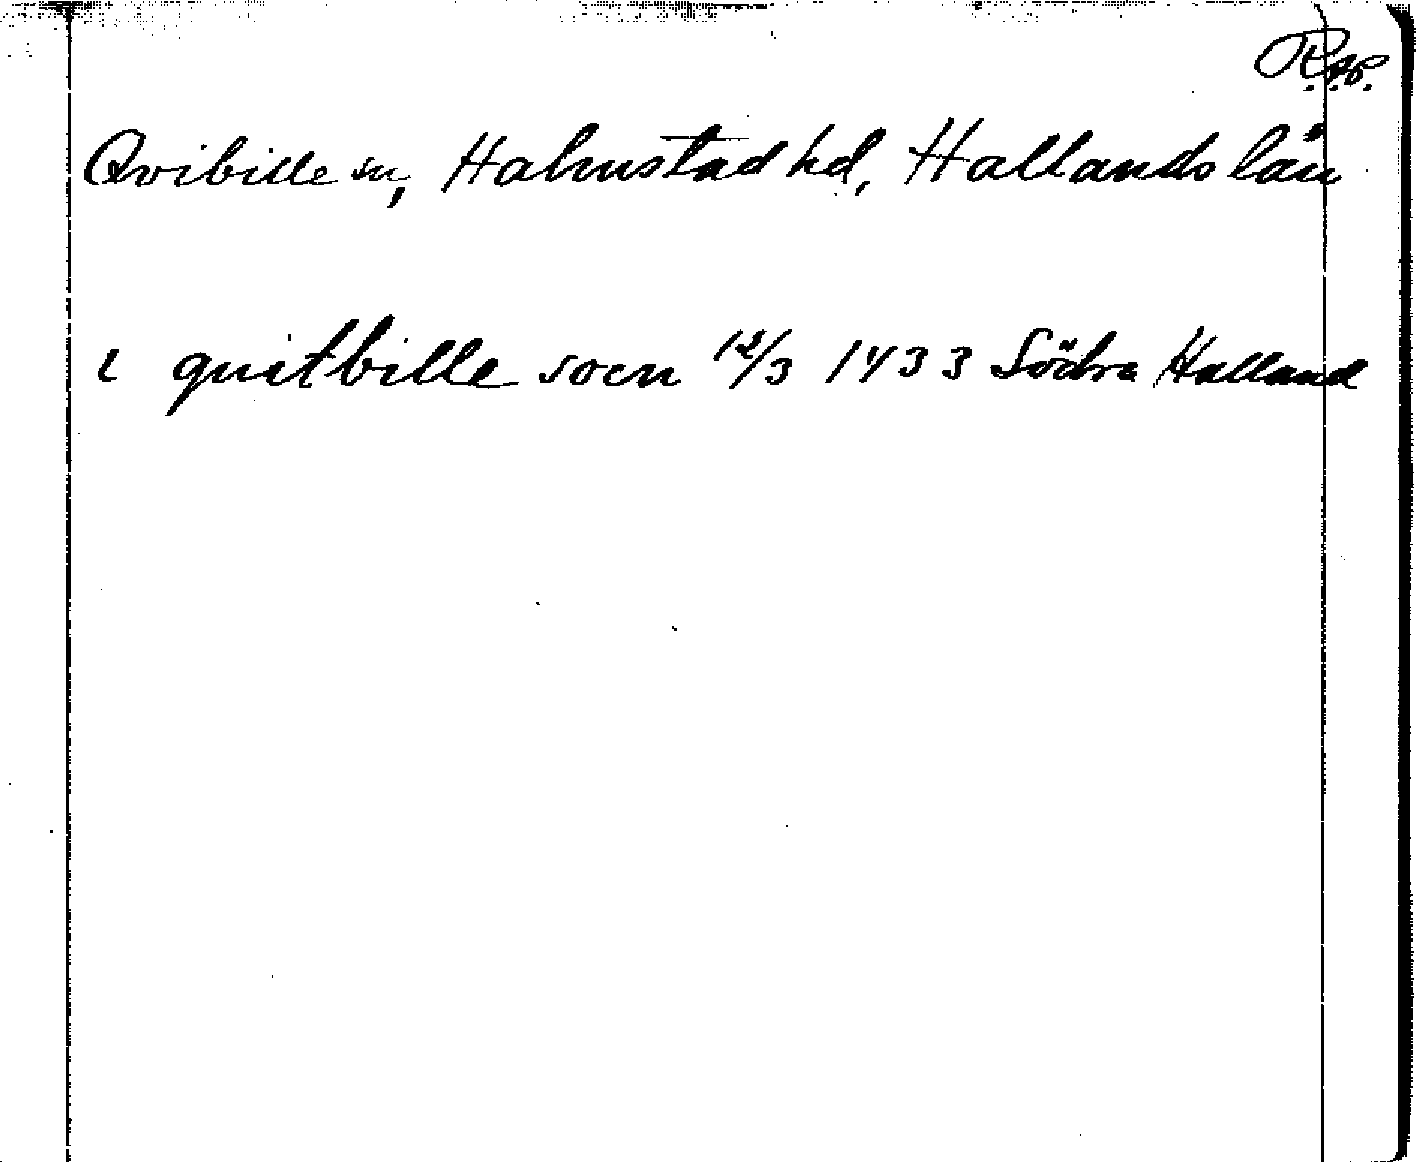 R.A.P.
Qvibille sn, Halmstad hd, Hallands län
i quitbille socn 12/3 1433 Södra Halland